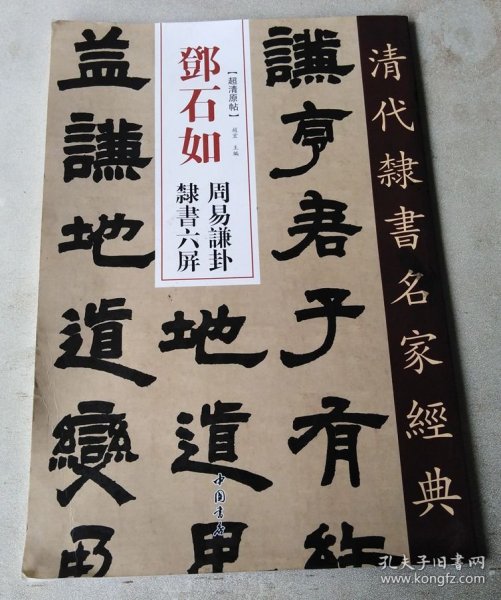 清代隸書名家經典
【超清原帖】
鄧石如
周易謙卦
隸書六屏
主編
謙亨君子有
地道
益謙地道變
中国书店
孔夫子旧书网
www.kongfz.com